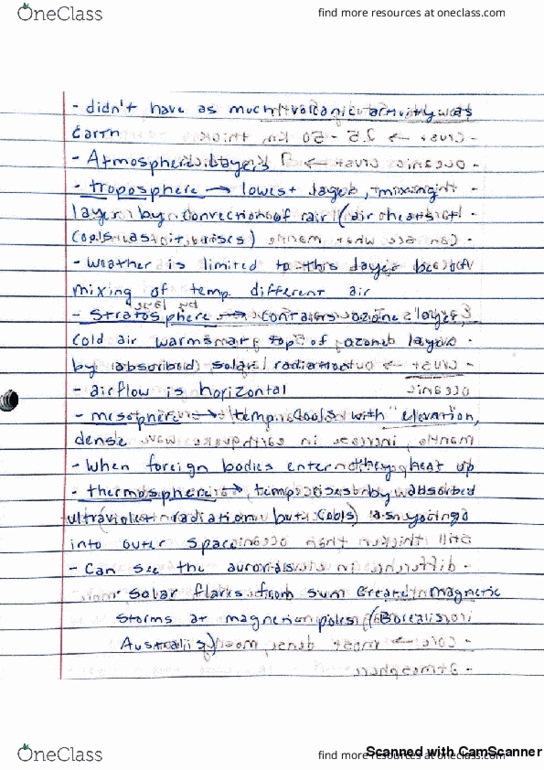 OneClass
find more resources at oneclass.com
- didn't have as much volcanic activity as
Earth
- Atmosphere Layers
- troposphere → lowest layer, mixing
layer by convection of air (air heats +
cools as it rises)
- weather is limited to this layer bc of
mixing of temp. different air
- Stratosphere → contains ozone layer,
cold air warms at top of ozone layer
by absorbed solar radiation
- airflow is horizontal
- mesophere → temp. cools with elevation,
dense
- when foreign bodies enter they heat up
- thermosphere → temp rises by absorbed
ultraviolet radiation but cools as you go
into outer space
- Can see the auroras
· solar flares from sun create magnetic
storms at magnetic poles (Borealis,
Australis)
Scanned with CamScanner
OneClass
find more resources at oneclass.com